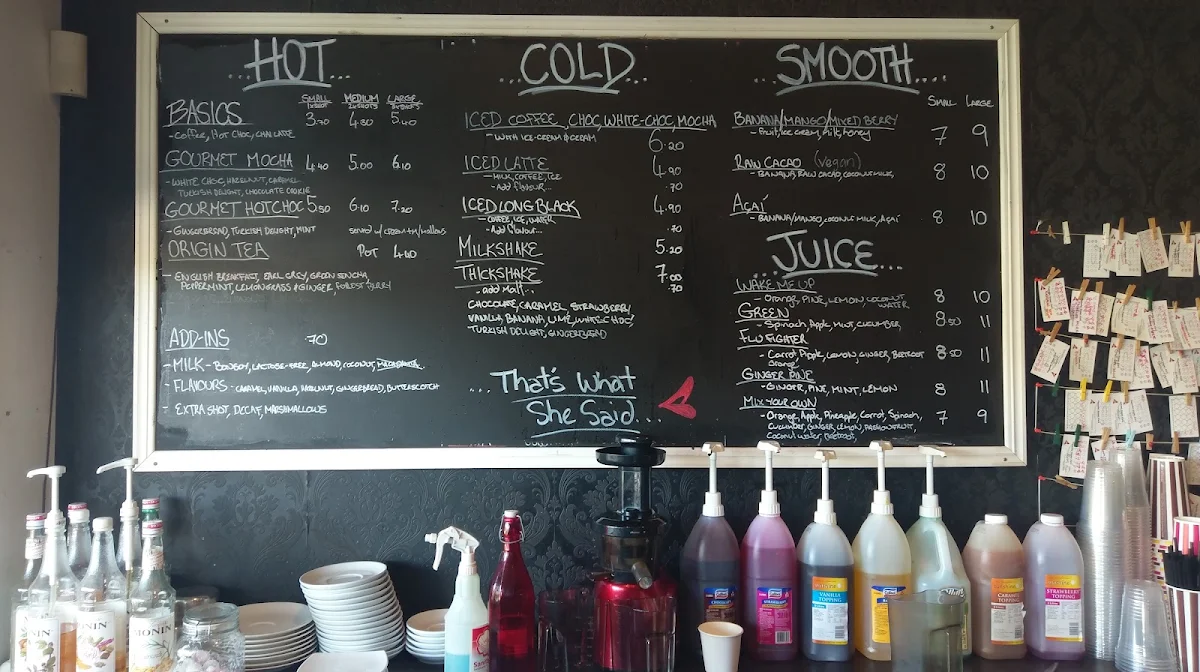 ...HOT...
SMALL MEDIUM LARGE
1xSHOT 2xSHOTS 3xSHOTS
BASICS 3.70 4.30 5.40
- COFFEE, HOT CHOC, CHAI LATTE
GOURMET MOCHA 4.40 5.00 6.10
- WHITE CHOC, HAZELNUT, CARAMEL
TURKISH DELIGHT, CHOCOLATE COOKIE
GOURMET HOTCHOC 5.50 6.10 7.20
- GINGERBREAD, TURKISH DELIGHT, MINT served w/ cream +m/mallows
ORIGIN TEA POT 4.40
- ENGLISH BREAKFAST, EARL GREY, GREEN SENCHA,
PEPPERMINT, LEMONGRASS & GINGER, FOREST BERRY
ADD-INS 70
- MILK - BONSOY, LACTOSE-FREE, ALMOND, COCONUT,
- FLAVOURS - CARAMEL, VANILLA, HAZELNUT, GINGERBREAD, BUTTERSCOTCH
- EXTRA SHOT, DECAF, MARSHMALLOWS
...COLD...
ICED COFFEE, CHOC, WHITE-CHOC, MOCHA
- WITH ICE-CREAM & CREAM 6.20
ICED LATTE 4.90
- MILK, COFFEE, ICE
- Add flavour... .70
ICED LONG BLACK 4.90
- COFFEE, ICE, WATER
- Add flavour... .70
MILKSHAKE 5.20
THICKSHAKE 7.00
- add Malt... 70
CHOCOLATE, CARAMEL, STRAWBERRY
VANILLA, BANANA, LIME, WHITE CHOC,
TURKISH DELIGHT, GINGERBREAD
...That's What
She Said...
...SMOOTH....
SMALL LARGE
BANANA/MANGO/MIXED BERRY 7 9
- Fruit, ice cream, milk, honey
RAW CACAO (vegan) 8 10
- BANANA, RAW CACAO, COCONUT MILK,
Açaí 8 10
- BANANA/MANGO, COCONUT MILK, AÇAÍ
...JUICE...
WAKE ME UP 8 10
- Orange, PINE, LEMON, COCONUT
WATER
GREEN 8.50 11
- Spinach, Apple, MINT, CUCUMBER
FLU FIGHTER 8.50 11
- Carrot, Apple, LEMON, GINGER, BEETROOT
Orange
GINGER PINE 8 11
- GINGER, PINE, MINT, LEMON
MIX YOUR OWN 7 9
- Orange, Apple, Pineapple, Carrot, Spinach,
CUCUMBER, GINGER, LEMON, PASSIONFRUIT,
Coconut water, Beetroot
MONIN
MONIN
VANILLA
TOPPING
CARAMEL
TOPPING
STRAWBERRY
TOPPING